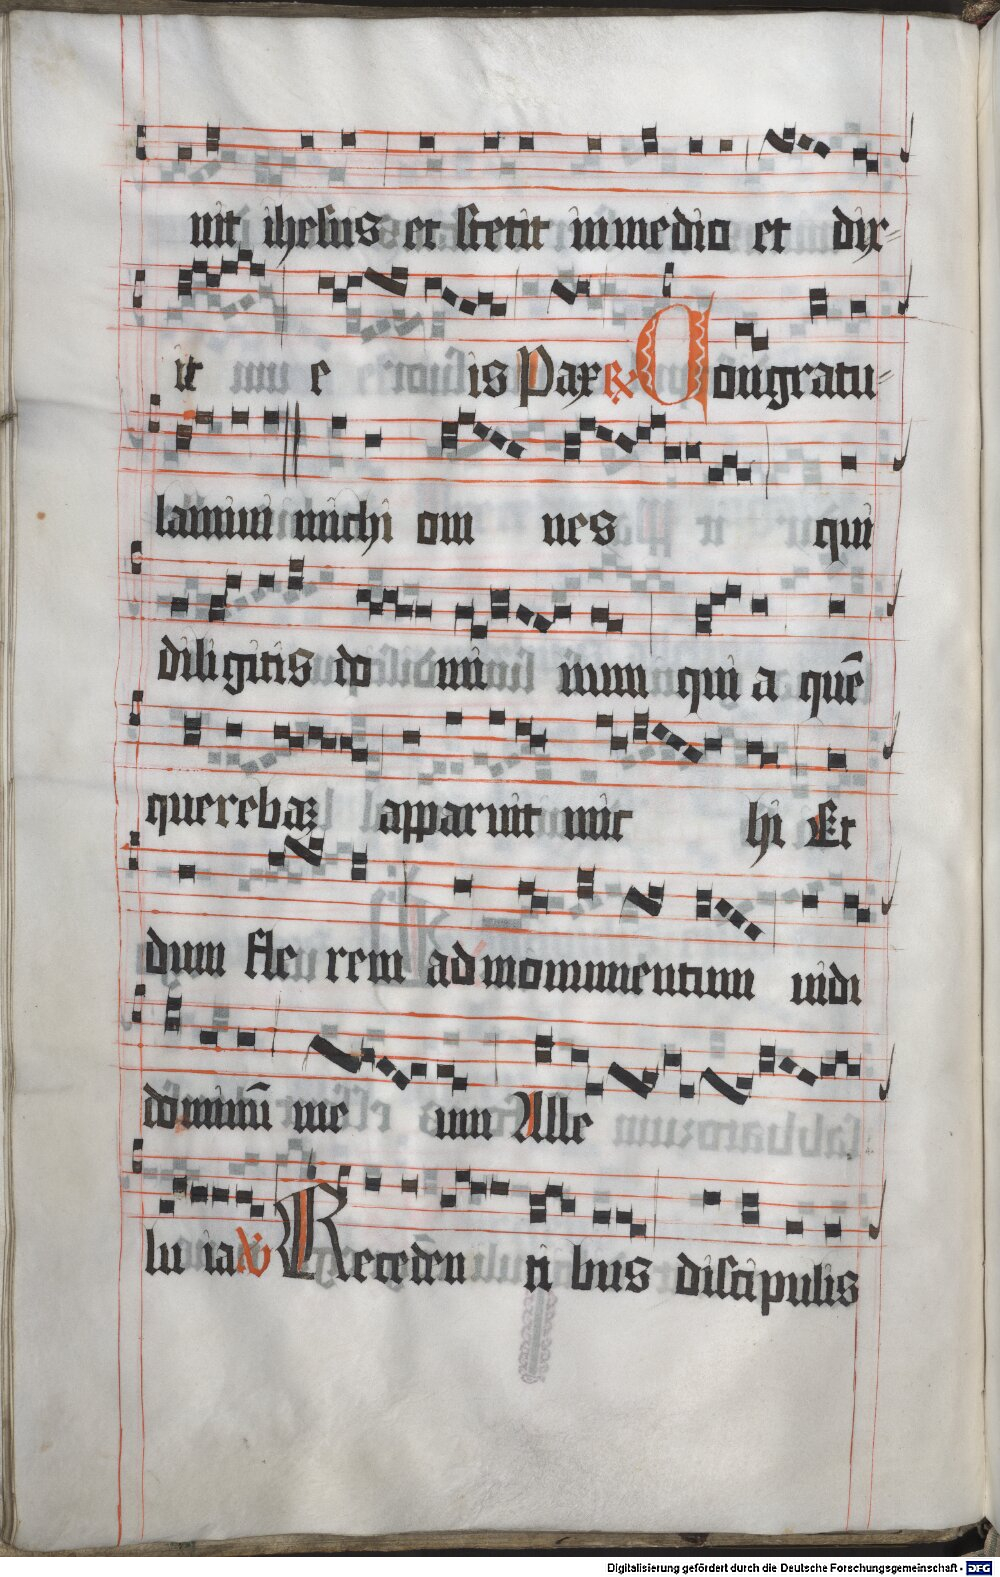 uit ihesus et stetit in medio et dix=
it e is Pax ℟ Congratu=
lamini michi om nes qui
diligitis do mi num qui a quē
querebaꝫ apparuit mic hi Et
dum fle rem ad monumentum uidi
dominū me um Alle
lu ia ℣ Recedēn ti bus discipulis
Digitalisierung gefördert durch die Deutsche Forschungsgemeinschaft - DFG